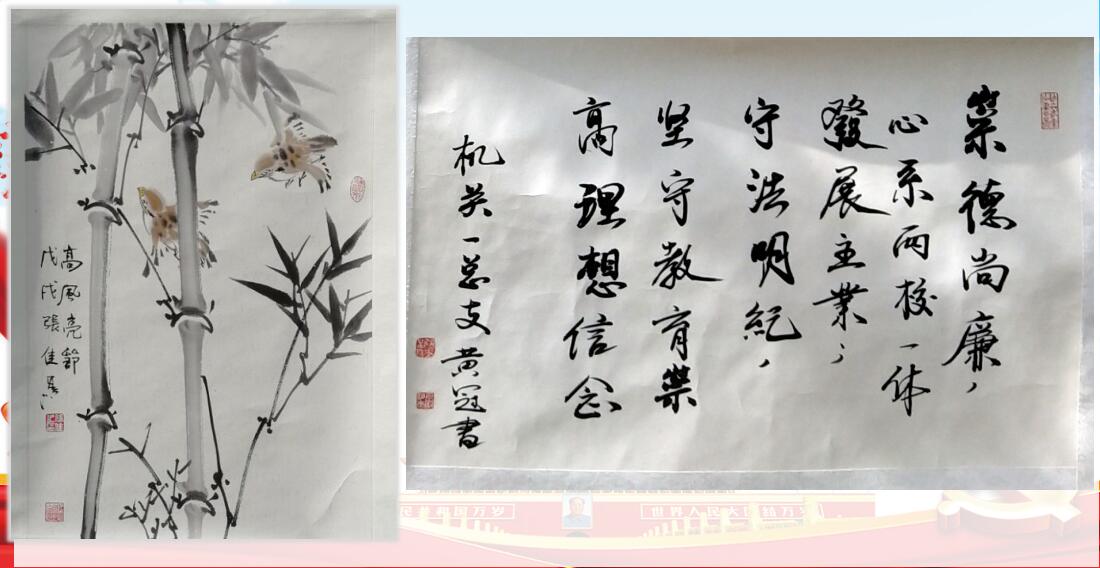 高風亮節
戊戌張佳
崇德尚廉，
心系两校一体
發展主業；
守法明紀，
坚守教育崇
高理想信念
机关一总支黄冠書
民共和国万岁
世界人民大团结万岁